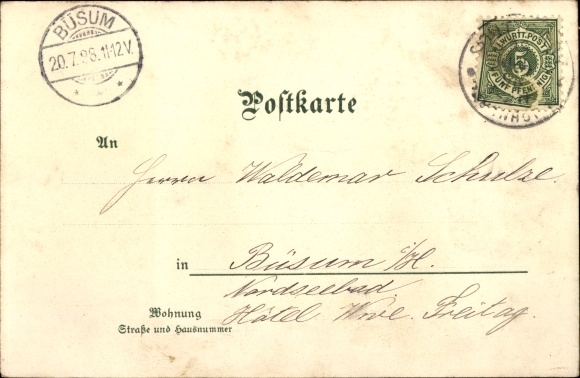 BÜSUM
20.7.98.11-12V.
K. WÜRTT. POST
5
FÜNF PFENNIG
Postkarte
An
Herrn Waldemar Schulze.
in Büsum i/H.
Nordseebad
Wohnung
Straße und Hausnummer
Hôtel Wwe. Freitag.